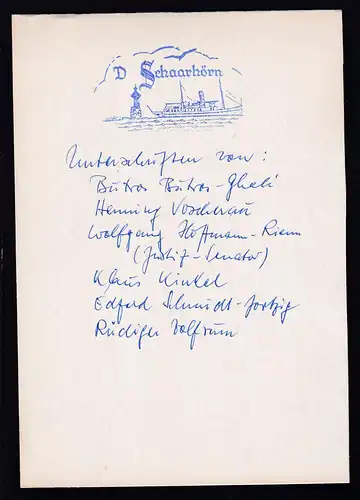 D Schaarhörn
Unterschriften von:
Butros Butros-Ghali
Henning Voscherau
Wolfgang Hoffmann-Riem
(Justiz-Senator)
Klaus Kinkel
Edzard Schmidt-Jortzig
Rüdiger Wolfrum